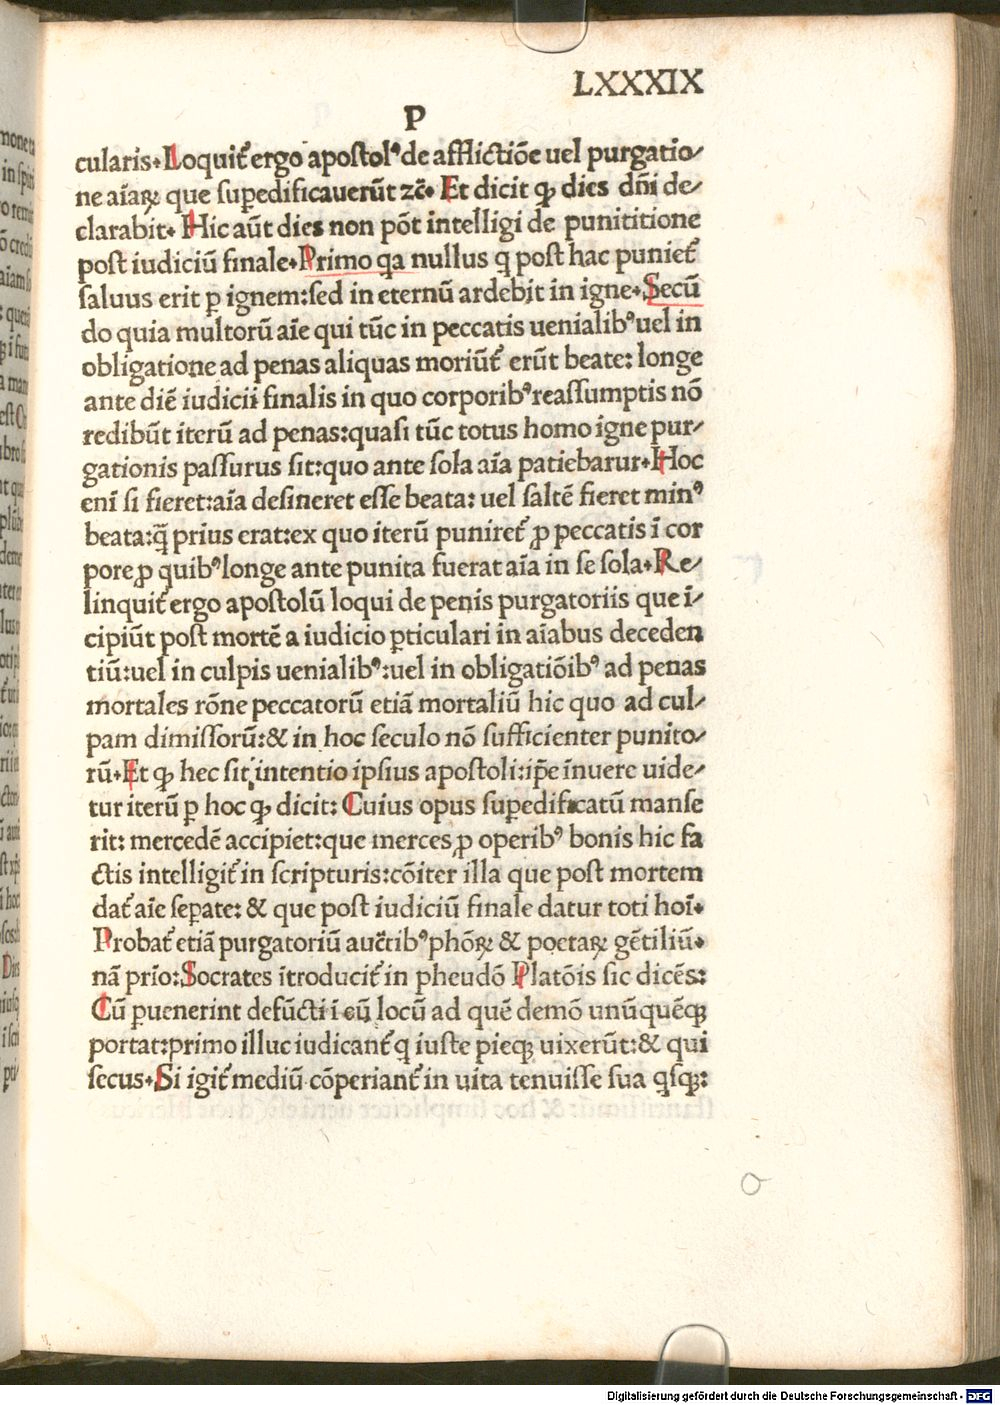 LXXXIX
P
cularis. Loquit̃ ergo apostolꝰ de afflictiõe uel purgatio⸗
ne aĩaꝝ que supedificauerũt ⁊c̃. Et dicit ꝙ dies dñi de⸗
clarabit. Hic aũt dies non põt intelligi de punititione
post iudiciũ finale. Primo qa nullus q post hac puniet̃
saluus erit ꝑ ignem: sed in eternũ ardebit in igne. Secũ
do quia multorũ aĩe qui tũc in peccatis uenialibꝰ uel in
obligatione ad penas aliquas moriũt̃ erũt beate: longe
ante diẽ iudicii finalis in quo corporibꝰ reassumptis nõ
redibũt iterũ ad penas: quasi tũc totus homo igne pur⸗
gationis passurus sit: quo ante sola aĩa patiebarur. Hoc
enĩ si fieret: aĩa desineret esse beata: uel saltẽ fieret minꝰ
beata: q̃ prius erat: ex quo iterũ puniret̃ ꝓ peccatis ĩ cor
pore ꝓ quibꝰ longe ante punita fuerat aĩa in se sola. Re⸗
linquit̃ ergo apostolũ loqui de penis purgatoriis que ĩ⸗
cipiũt post mortẽ a iudicio ꝑticulari in aĩabus deceden
tiũ: uel in culpis uenialibꝰ: uel in obligatiõibꝰ ad penas
mortales rõne peccatorũ etiã mortaliũ hic quo ad cul⸗
pam dimissorũ: & in hoc seculo nõ sufficienter punito⸗
rũ. Et ꝙ hec sit intentio ipsius apostoli: ip̃e ĩnuere uide⸗
tur iterũ ꝑ hoc ꝙ dicit: Cuius opus suꝑedificatũ manse
rit: mercedẽ accipiet: que merces ꝓ operibꝰ bonis hic fa
ctis intelligit̃ in scripturis: cõiter illa que post mortem
dat̃ aĩe seꝑate: & que post iudiciũ finale datur toti hoĩ.
Probat̃ etiã purgatoriũ auc̃tibꝰ phõꝝ & poetaꝝ gẽtiliũ.
nã prĩo: Socrates ĩtroducit̃ in pheudõ Platõis sic dicẽs:
Cũ ꝑuenerint defũcti ĩ eũ locũ ad quẽ demõ unũquẽqꝫ
portat: primo illuc iudicant̃ q iuste pieqꝫ uixerũt: & qui
secus. Si igit̃ mediũ cõperiant̃ in uita tenuisse sua qsqꝫ:
Digitalisierung gefördert durch die Deutsche Forschungsgemeinschaft - DFG